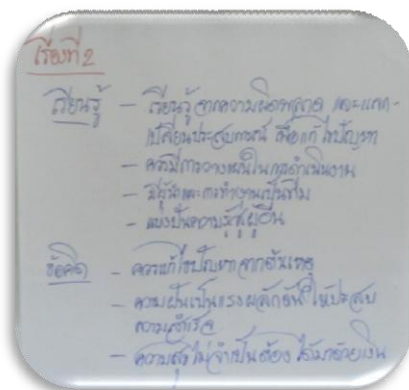 เรื่องที่ 2
เรียนรู้ – เรียนรู้จากความผิดพลาด และแลก-
เปลี่ยนประสบการณ์ เพื่อแก้ไขปัญหา
– ควรมีการวางแผนในการดำเนินงาน
– มีผู้นำและการทำงานเป็นทีม
– แบ่งปันความรู้สู่ผู้อื่น
ข้อคิด – ควรแก้ไขปัญหาจากต้นเหตุ
– ความฝันเป็นแรงผลักดันให้ประสบ
ความสำเร็จ
– ความสุขไม่จำเป็นต้องได้มาด้วยเงิน